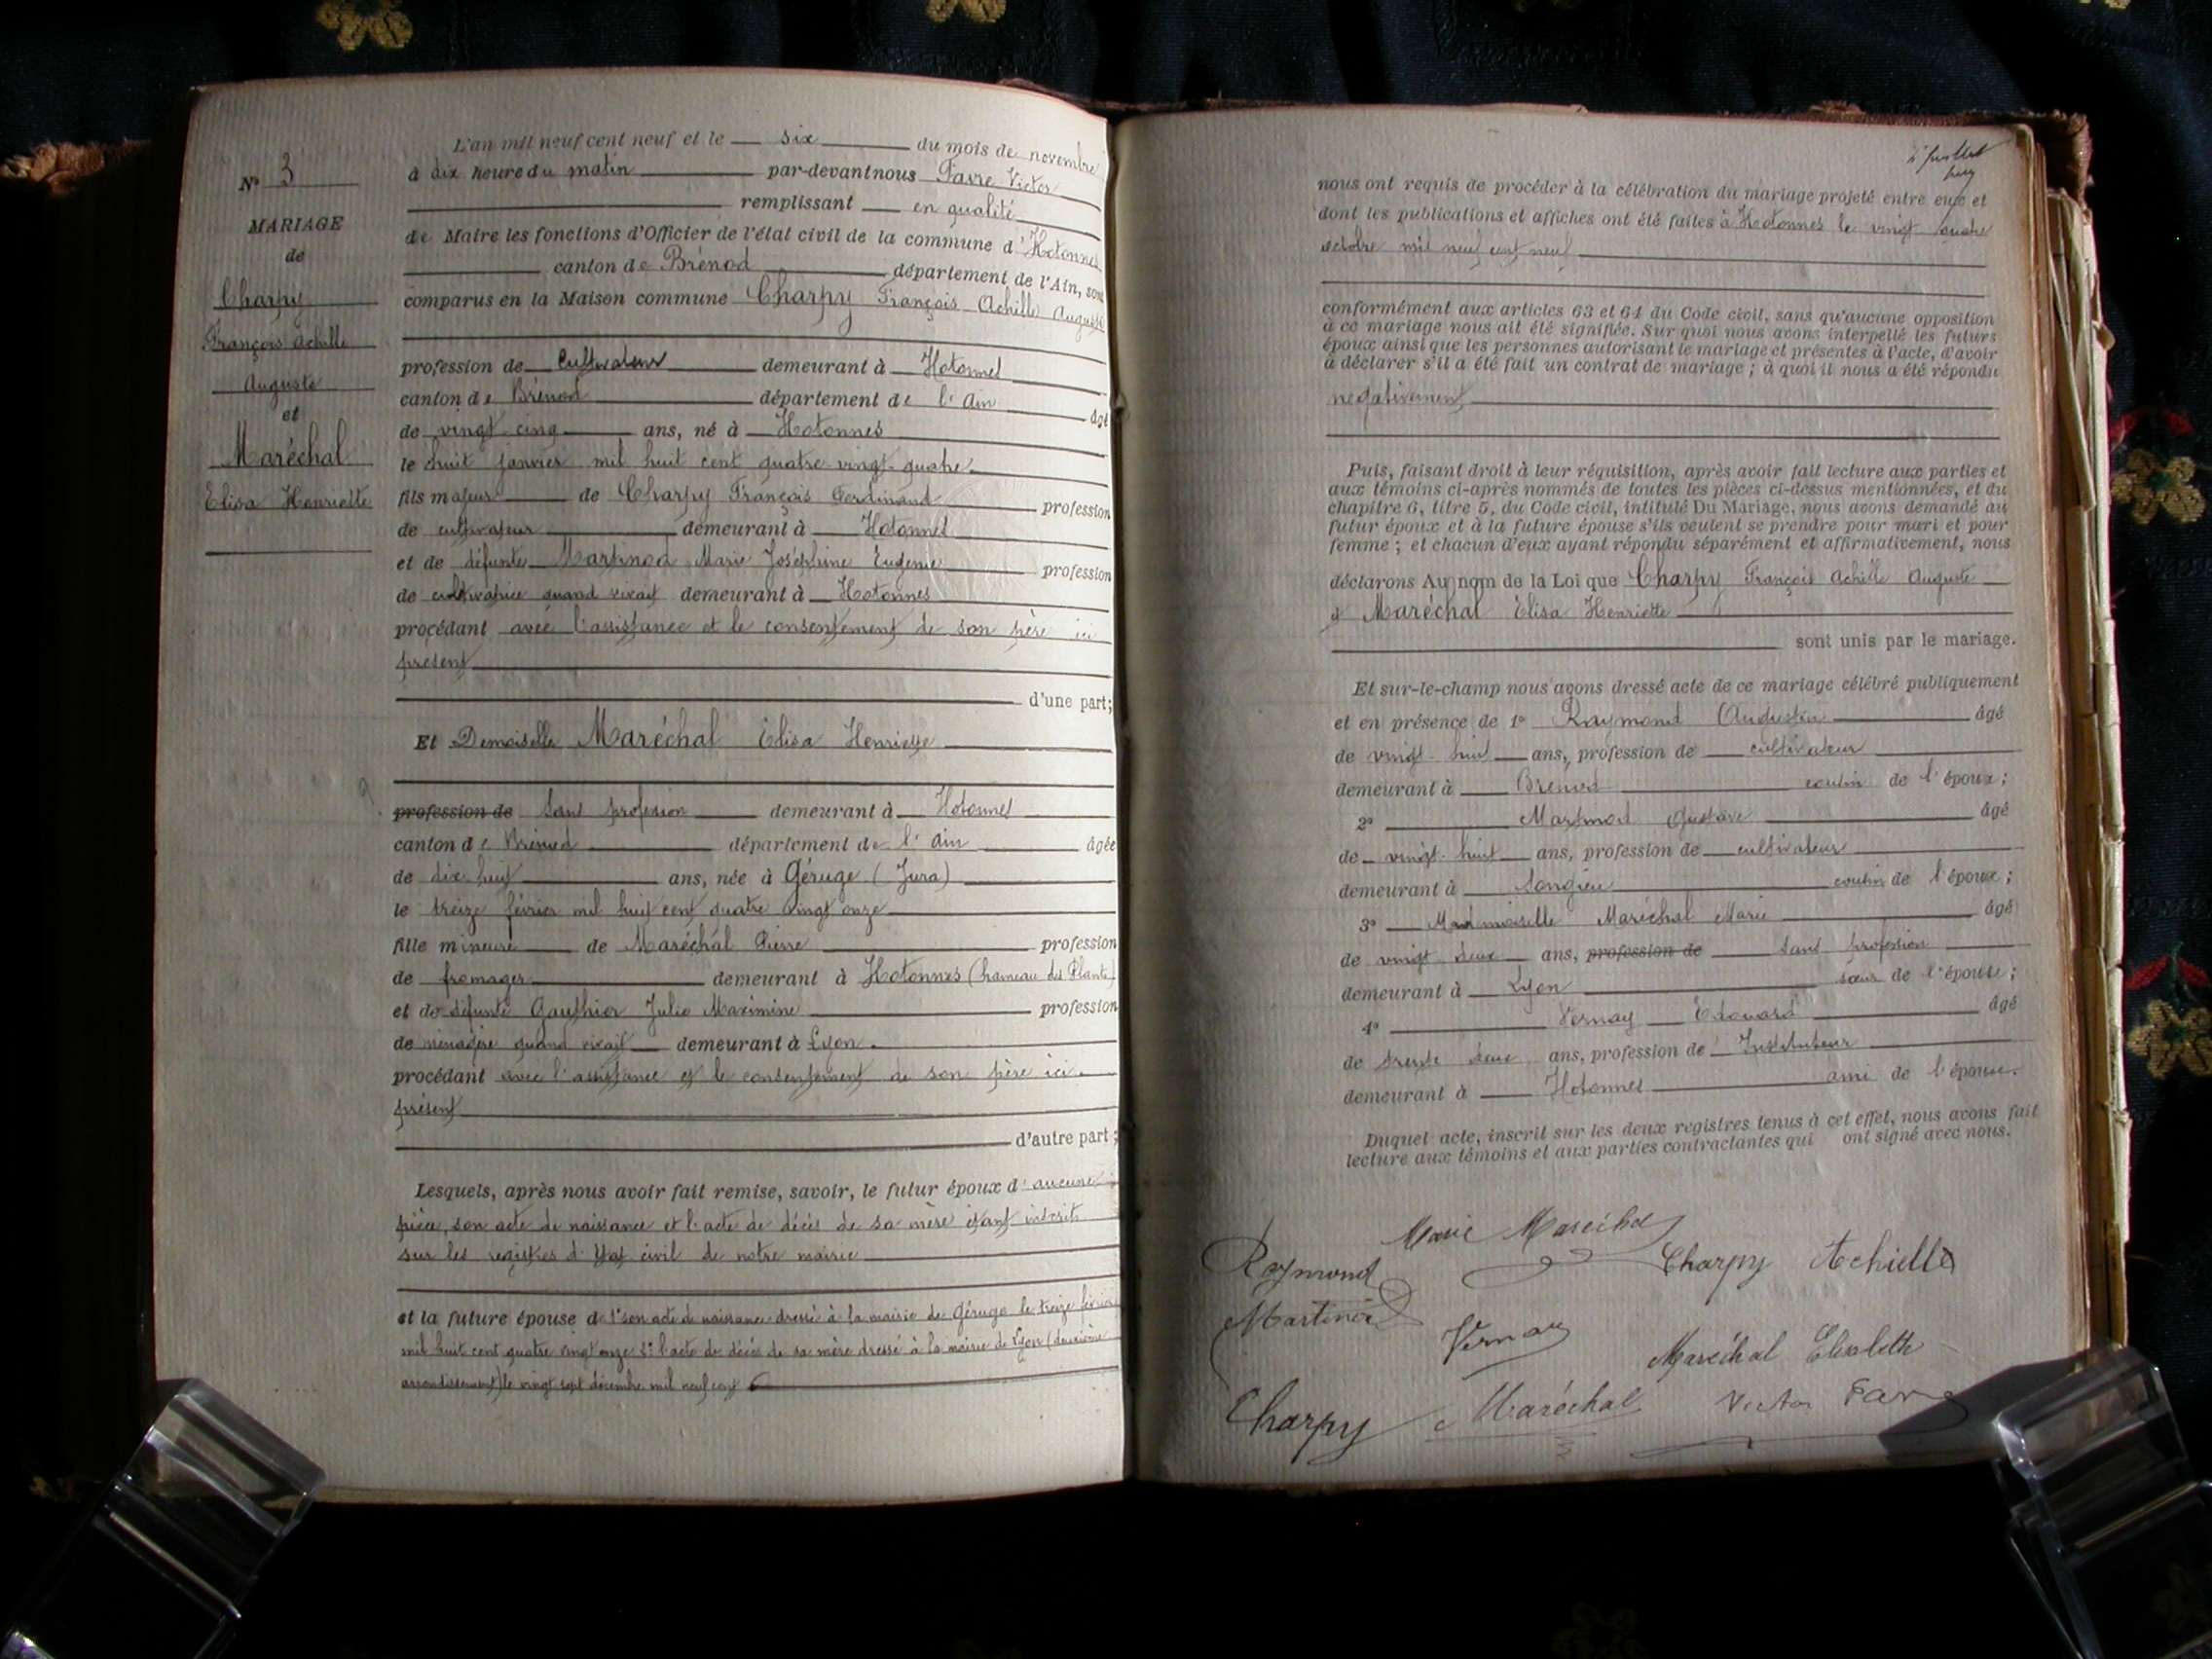 N° 3
MARIAGE
de
Charpy
François Achille
Auguste
et
Maréchal
Elisa Henriette
L'an mil neuf cent neuf et le six du mois de novembre
à dix heure du matin par-devant nous Favre Victor
remplissant en qualité
de Maire les fonctions d'Officier de l'état civil de la commune d'Hotonnes
canton de Brénod département de l'Ain, sont
comparus en la Maison commune Charpy François Achille Auguste
profession de cultivateur demeurant à Hotonnes
canton de Brénod département de l'Ain âgé
de vingt-cinq ans, né à Hotonnes
le huit janvier mil huit cent quatre vingt-quatre
fils majeur de Charpy François Ferdinand profession
de cultivateur demeurant à Hotonnes
et de défunte Martinod Marie Joséphine Eugénie profession
de cultivatrice quand vivait demeurant à Hotonnes
procédant avec l'assistance et le consentement de son père ici
présent
d'une part;
Et Demoiselle Maréchal Elisa Henriette
profession de sans profession demeurant à Hotonnes
canton de Brénod département de l'Ain âgée
de dix huit ans, née à Géruge (Jura)
le treize février mil huit cent quatre vingt onze
fille mineure de Maréchal Pierre profession
de fromager demeurant à Hotonnes (hameau des Plans)
et de défunte Gauthier Julie Maximine profession
de ménagère quand vivait demeurant à Lyon
procédant avec l'assistance et le consentement de son père ici
présent
d'autre part;
Lesquels, après nous avoir fait remise, savoir, le futur époux d'aucune
pièce, son acte de naissance et l'acte de décès de sa mère étant inscrits
sur les registres d'état civil de notre mairie
et la future épouse de 1° son acte de naissance dressé à la mairie de Géruge le treize février
mil huit cent quatre vingt onze 2° l'acte de décès de sa mère dressé à la mairie de Lyon (deuxième
arrondissement) le vingt sept décembre mil neuf cent
nous ont requis de procéder à la célébration du mariage projeté entre eux et
dont les publications et affiches ont été faites à Hotonnes le vingt quatre
octobre mil neuf cent neuf
conformément aux articles 63 et 64 du Code civil, sans qu'aucune opposition
à ce mariage nous ait été signifiée. Sur quoi nous avons interpellé les futurs
époux ainsi que les personnes autorisant le mariage et présentes à l'acte, d'avoir
à déclarer s'il a été fait un contrat de mariage; à quoi il nous a été répondu
négativement
Puis, faisant droit à leur réquisition, après avoir fait lecture aux parties et
aux témoins ci-après nommés de toutes les pièces ci-dessus mentionnées, et du
chapitre 6, titre 5, du Code civil, intitulé Du Mariage, nous avons demandé au
futur époux et à la future épouse s'ils veulent se prendre pour mari et pour
femme; et chacun d'eux ayant répondu séparément et affirmativement, nous
déclarons Au nom de la Loi que Charpy François Achille Auguste
et Maréchal Elisa Henriette
sont unis par le mariage.
Et sur-le-champ nous avons dressé acte de ce mariage célébré publiquement
et en présence de 1° Raymond Augustin âgé
de vingt-huit ans, profession de cultivateur
demeurant à Brénod cousin de l'époux;
2° Martinod Gustave âgé
de vingt-huit ans, profession de cultivateur
demeurant à Songieu cousin de l'époux;
3° Mademoiselle Maréchal Marie âgé
de vingt deux ans, profession de sans profession
demeurant à Lyon sœur de l'épouse;
4° Vernay Edouard âgé
de trente deux ans, profession de Instituteur
demeurant à Hotonnes ami de l'épouse.
Duquel acte, inscrit sur les deux registres tenus à cet effet, nous avons fait
lecture aux témoins et aux parties contractantes qui ont signé avec nous.
Marie Maréchal
Raymond Charpy Achille
Martinod
Vernay Maréchal Elisabeth
Charpy Maréchal Victor Favre